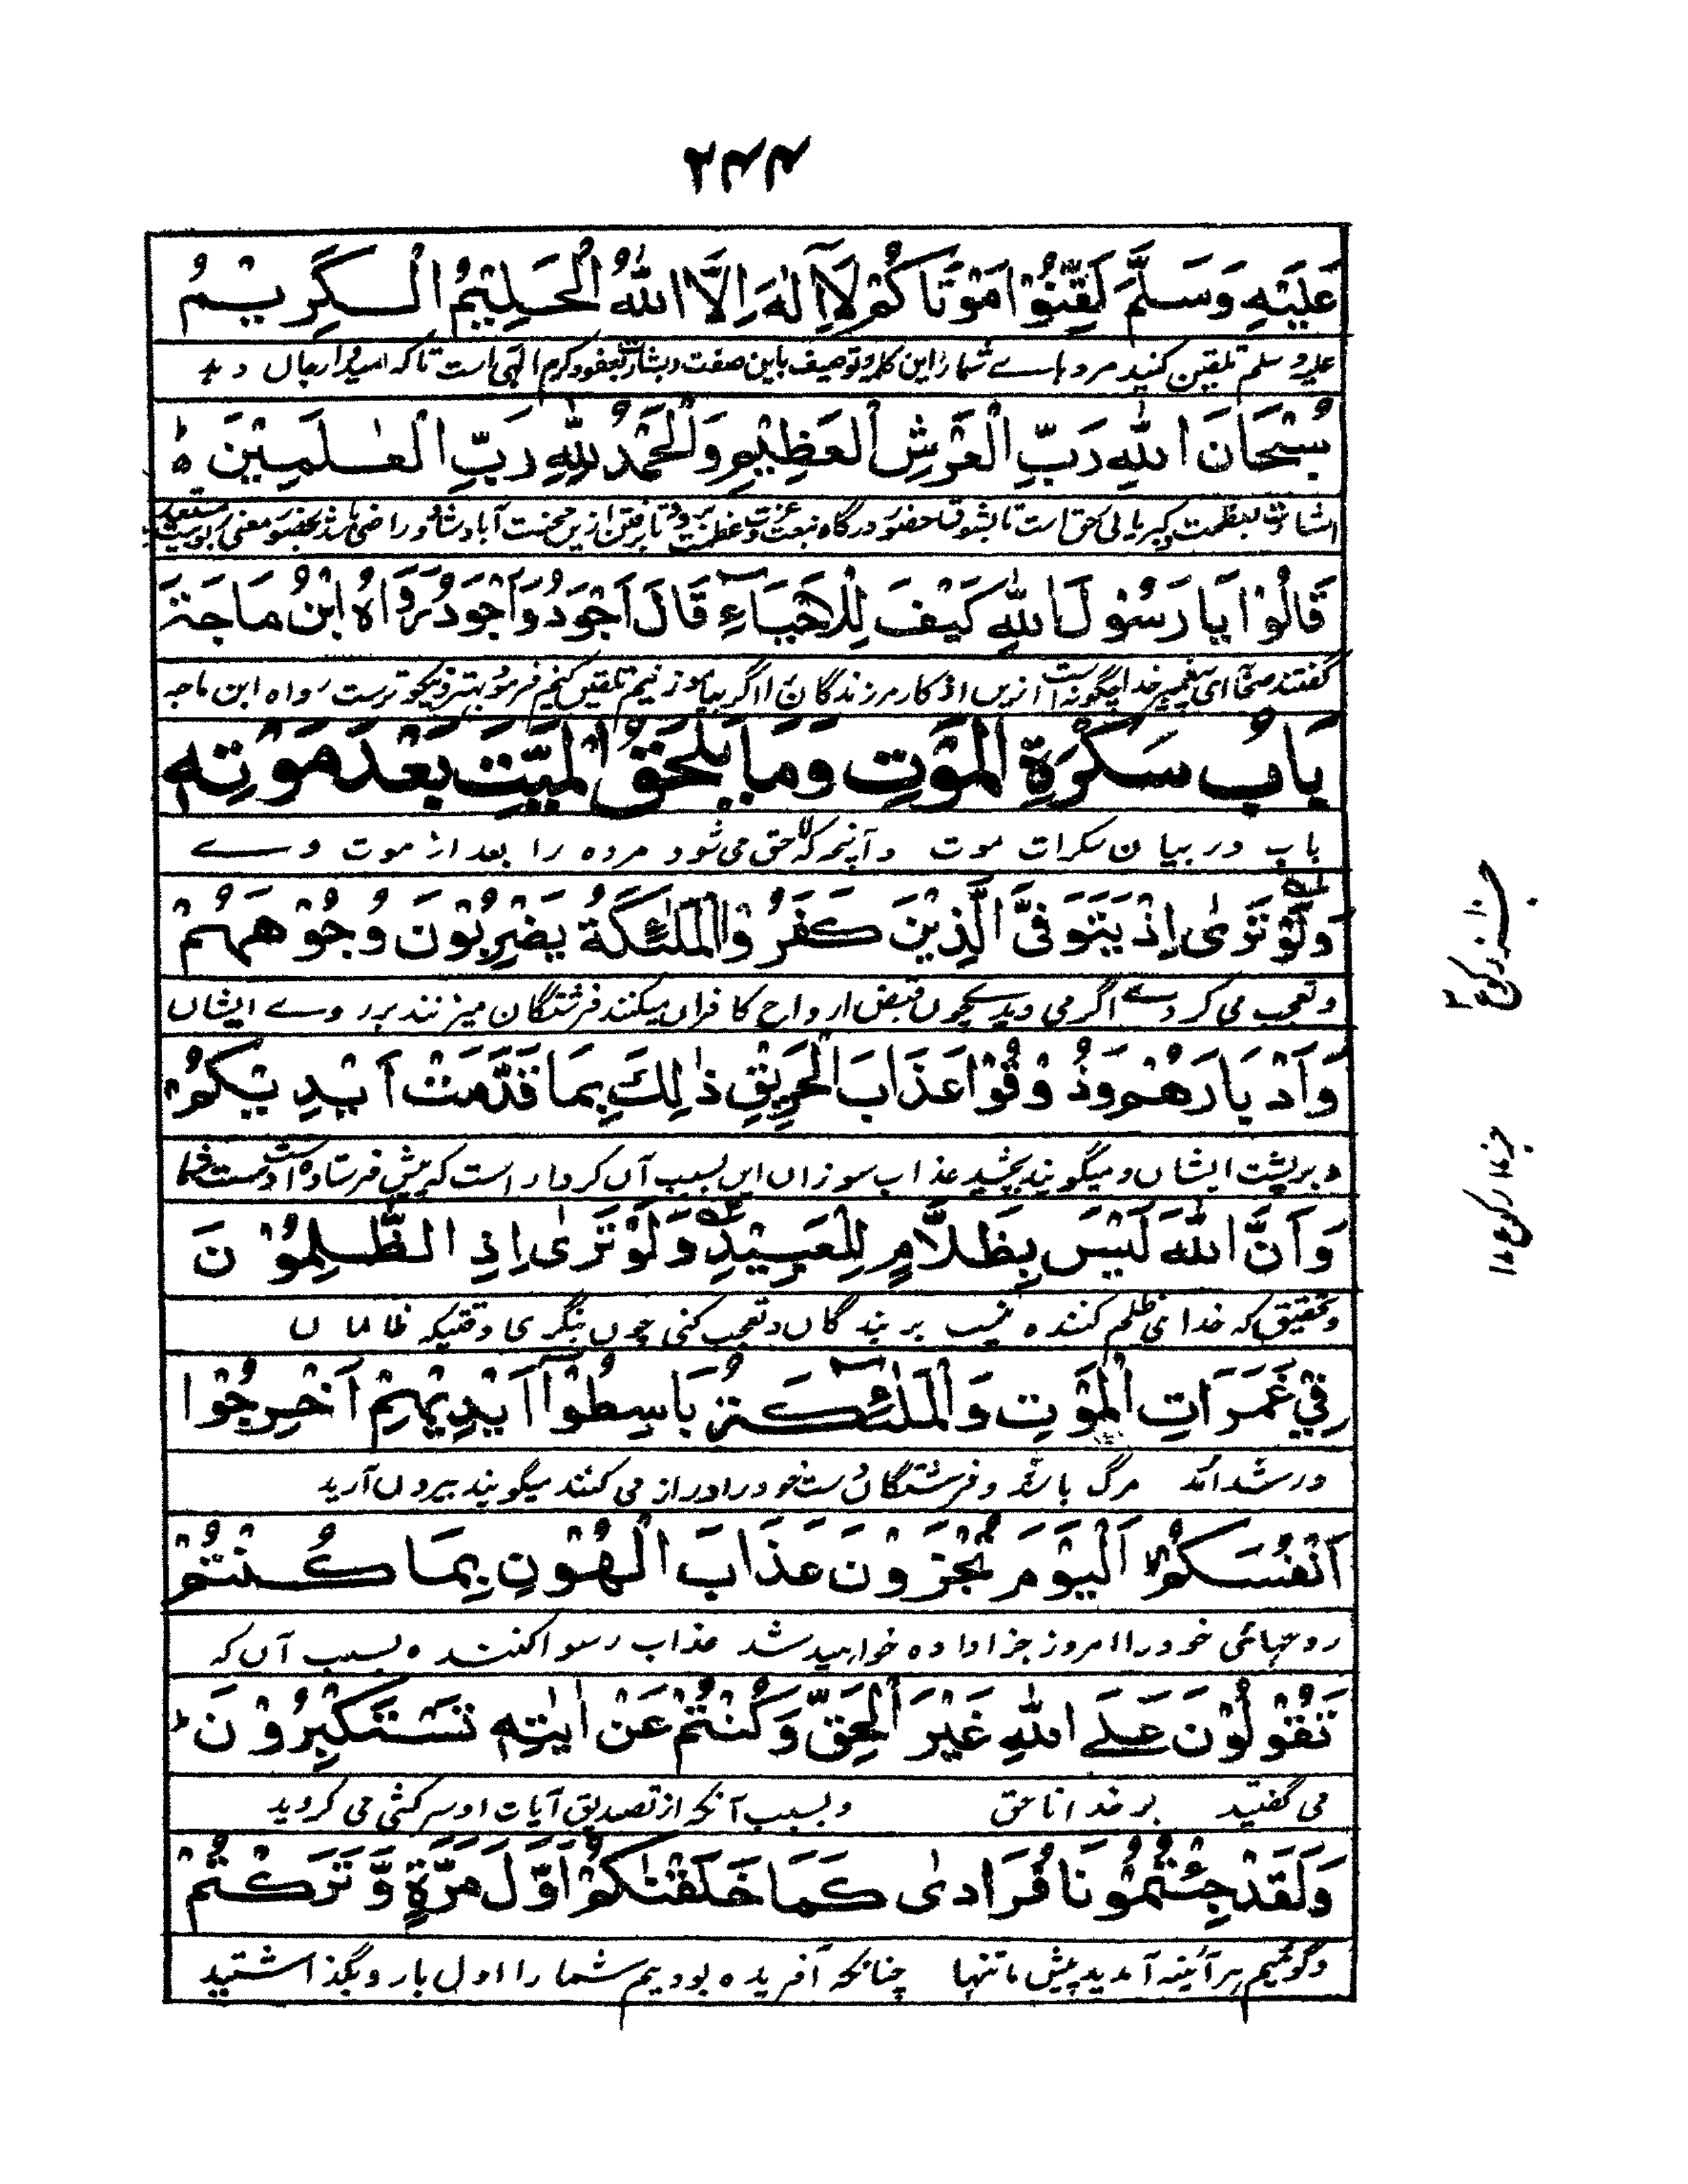 ۲۴۴
عَلَيْهِ وَسَلَّمَ لَقِّنُوْا مَوْتَاكُمْ لَآ اِلٰهَ اِلَّا اللّٰهُ الْحَلِيْمُ الْكَرِيْمُ
علیه وسلم تلقین کنید مردهاے شما را این کلمه توصیف باین صفت و بشارت بعفو و کرم الٰهی است تا که امیدوار جاں دہد
سُبْحَانَ اللّٰهِ رَبِّ الْعَرْشِ الْعَظِيْمِ وَالْحَمْدُ لِلّٰهِ رَبِّ الْعٰلَمِيْنَ ط
اشارت بعظمت و کبریائی حق است تا بشوق حضور درگاه عزت و عظمت برود تا برفتن ازیں محنت آباد شاد و راضی باشد
قَالُوْا يَا رَسُوْلَ اللّٰهِ كَيْفَ لِلْاَحْيَآءِ قَالَ اَجْوَدُ وَاَجْوَدُ رَوَاهُ ابْنُ مَاجَةَ
گفتند صحابه ای پیغمبر خدا چگونه است ازیں اذکار مر زندگان را اگر بیاموزنیم تلقین کنیم فرمود بهتر و نیکوتر ست رواه ابن ماجه
بَابُ سَكْرَةِ الْمَوْتِ وَمَا يَلْحَقُ الْمَيِّتَ بَعْدَ مَوْتِهٖ
باب در بیان سکرات موت و آنچه که لاحق می شود مرده را بعد از موت وے
وَلَوْ تَرٰى اِذْ يَتَوَفَّى الَّذِيْنَ كَفَرُوا الْمَلٰٓئِكَةُ يَضْرِبُوْنَ وُجُوْهَهُمْ
و تعجب می کردے اگر می دیدے چوں قبض ارواح کافراں میکنند فرشتگان میزنند بر روے ایشاں
وَاَدْبَارَهُمْ وَذُوْقُوْا عَذَابَ الْحَرِيْقِ ذٰلِكَ بِمَا قَدَّمَتْ اَيْدِيْكُمْ
و بر پشت ایشاں و میگویند بچشید عذاب سوزاں ایں بسبب آں کردار است که پیش فرستاده است دست شما
وَاَنَّ اللّٰهَ لَيْسَ بِظَلَّامٍ لِّلْعَبِيْدِ وَلَوْ تَرٰى اِذِ الظّٰلِمُوْنَ
و تحقیق که خدای ظلم کننده نیست بر بندگاں و تعجب کنی چوں بنگری وقتیکه ظالماں
فِيْ غَمَرَاتِ الْمَوْتِ وَالْمَلٰٓئِكَةُ بَاسِطُوْآ اَيْدِيْهِمْ اَخْرِجُوْا
در شدائد مرگ باشند و فرشتگان دست خود را دراز می کنند میگویند بیروں آرید
اَنْفُسَكُمْ ط اَلْيَوْمَ تُجْزَوْنَ عَذَابَ الْهُوْنِ بِمَا كُنْتُمْ
روحہائی خود را امروز جزا داده خواهید شد عذاب رسوا کننده بسبب آں که
تَقُوْلُوْنَ عَلَى اللّٰهِ غَيْرَ الْحَقِّ وَكُنْتُمْ عَنْ اٰيٰتِهٖ تَسْتَكْبِرُوْنَ ط
می گفتید بر خدا ناحق و بسبب آنکه از تصدیق آیات او سرکشی می کردید
وَلَقَدْ جِئْتُمُوْنَا فُرَادٰى كَمَا خَلَقْنٰكُمْ اَوَّلَ مَرَّةٍ وَّتَرَكْتُمْ
و گوئیم هر آئینه آمدید پیش ما تنها چنانکه آفریده بودیم شما را اول بار و بگذاشتید
جز ۱۰ رکوع ۳
رکوع ۱۸